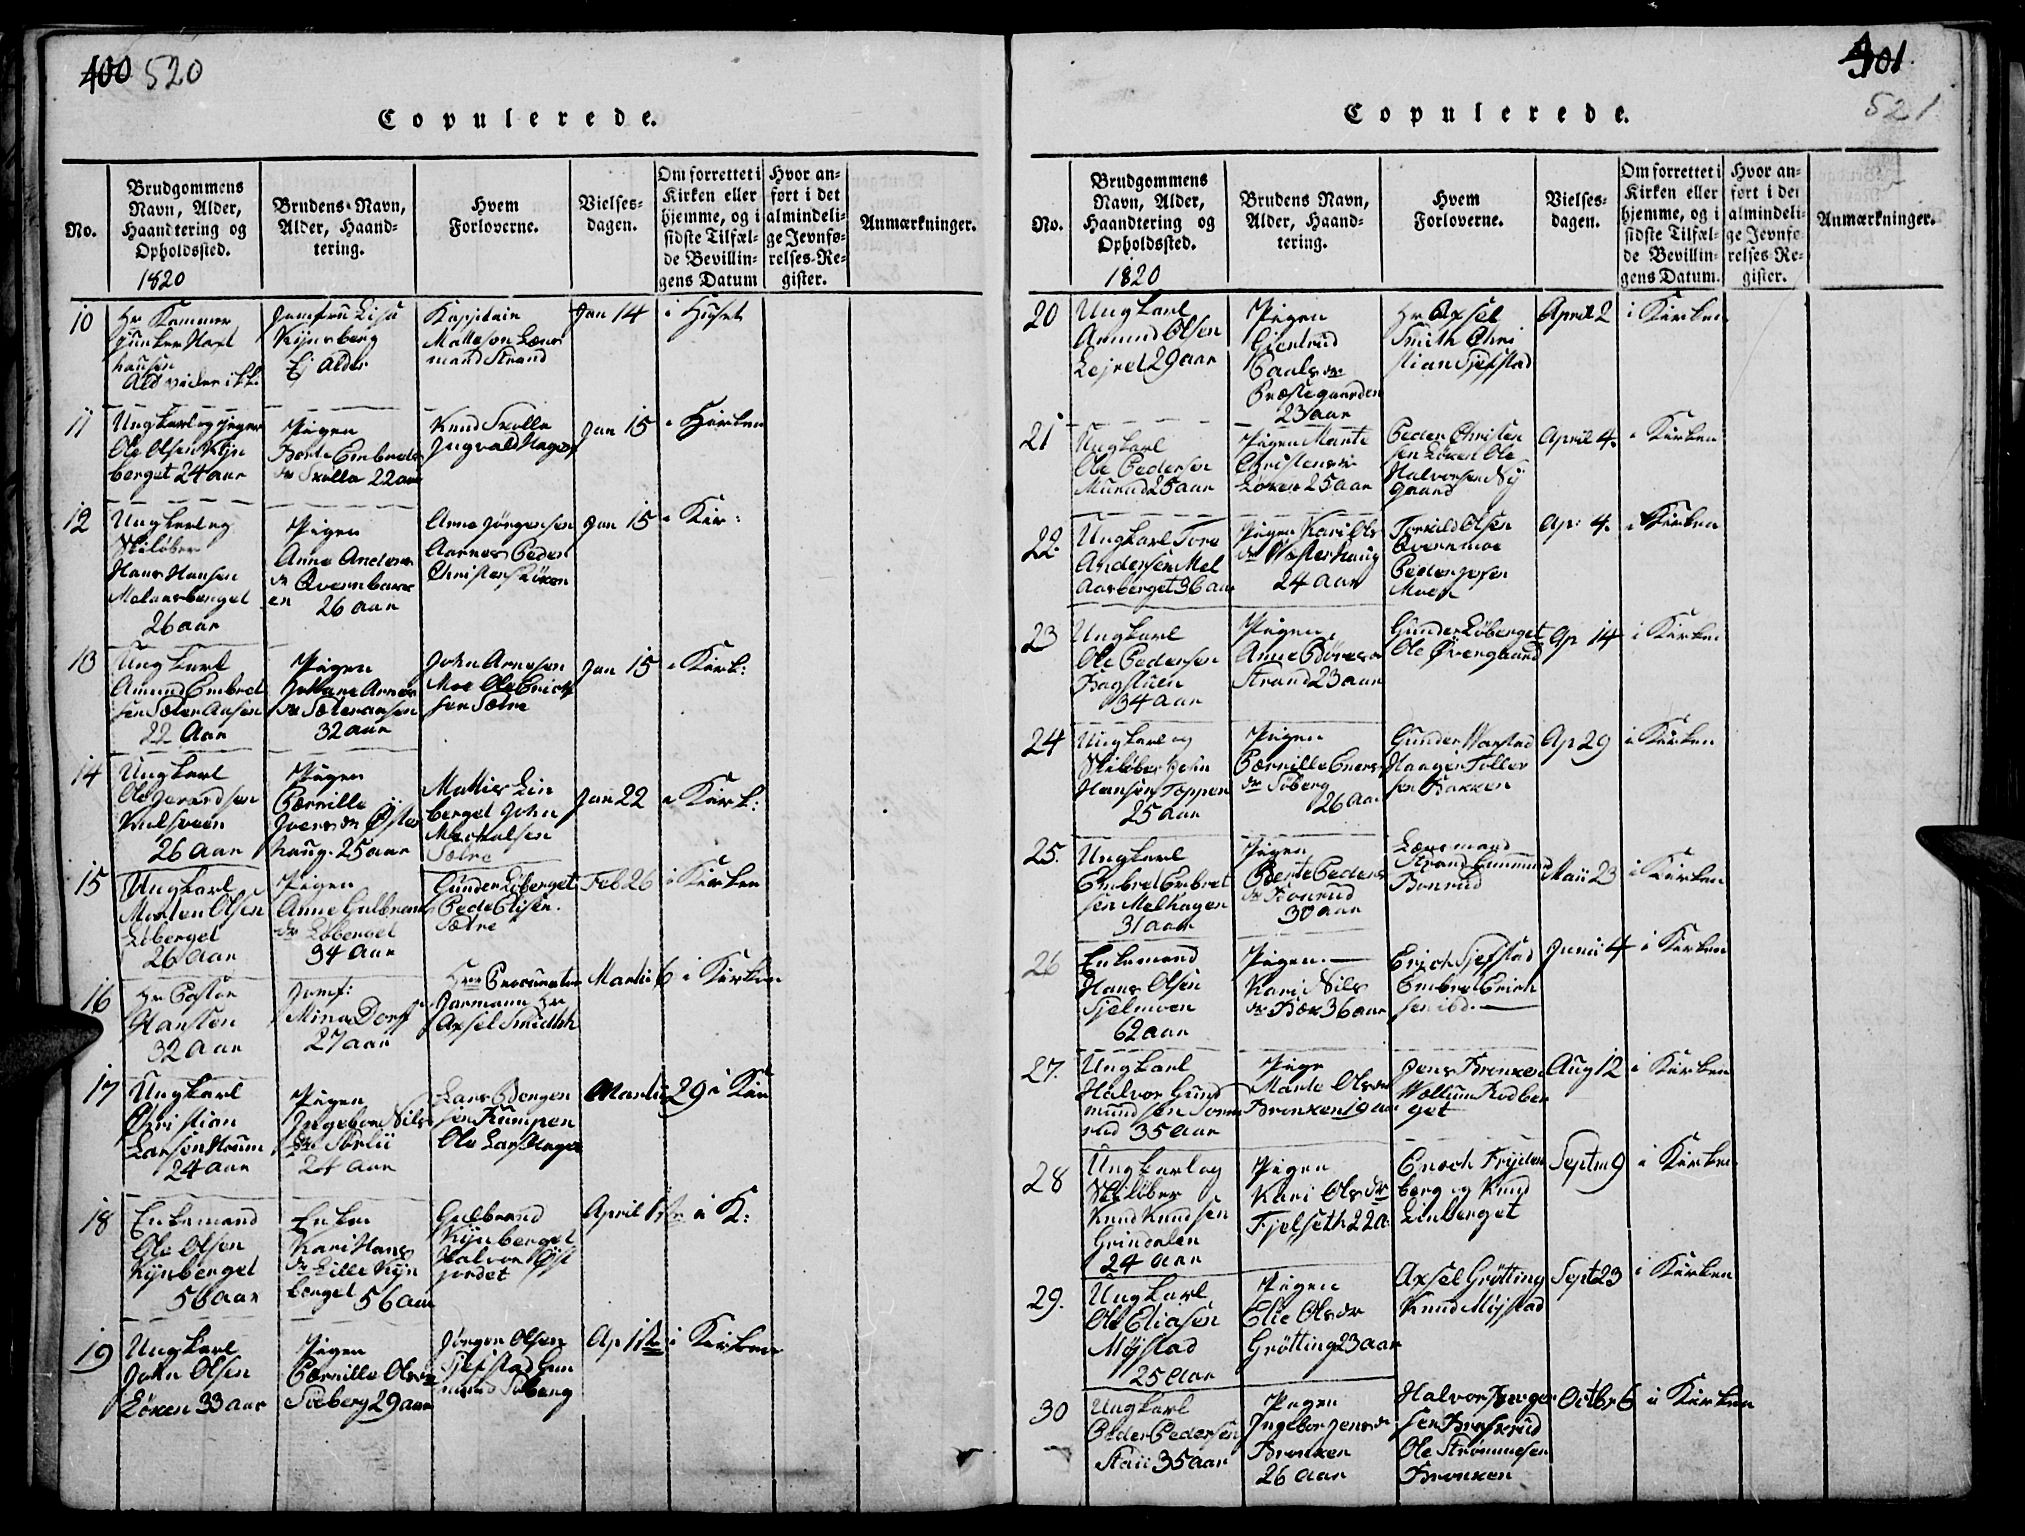 400 520
Copulerede.
No.
Brudgommens
Navn, Alder,
Haandtering og
Opholdssted.
1820
Brudens Navn,
Alder, Haand-
tering.
Hvem
Forloverne.
Vielses-
dagen.
Om forrettet i
Kirken eller
hjemme, og i
sidste Tilfæl-
de Bevillin-
gens Datum
Hvor an-
ført i det
almindeli-
ge Jevnfø-
relses-Re-
gister.
Anmærkninger.
10
Hr Kammer
junker Haxt
hausen
Ald vides ikke
Jomfru Lisa
Kynsberg
Ej Alder
Kapitain
Mattesen Læns
mand Strand
Jan 14
i Huset
11
Ungkarl og Jeger
Ole Olsen Kyn
berget 24 aar
Pigen
Berte Embrets
dr Skulla 22 aar
Knud Skolla
Ingvald Hagen
Jan 15
i Kirken
12
Ungkarl og
Skiløber
Hans Hansen
Melaasberget
26 aar
Pigen
Anne Anders
dr Qvernbærs
en 26 aar
Arne Jørgensen
Aarnes Peder
Christens Løken
Jan 15
i Kir:
13
Ung Karl
Amund Embret
sen Sæter Aasen
22 Aar
Pigen
Johane Arnes
dr Sæteraasen
32 aar
John Arnesen
Moe Ole Erich
sen Sætre
Jan 15
i Kirk:
14
Ungkarl
Ole Iverdsen
Kulsveen
26 aar
Pigen
Pærnille
Ivers dr Øster
haug. 25 aar
Mattis Lin
berget John
Michalsen
Sætre
Jan 22
i Kirk:
15
Ungkarl
Morten Olsen
Løberget
26 aar
Pigen
Anne Gulbrans
dr Løberget
34 aar
Gunder Løberget
Peder Olsen
Sætre
Feb 26
i Kirken
16
Hr Pastor
Hansten
32 aar
Jomf:
Mina Dorff
27 aar
Hrr Procurator
Jarmann Hr
Axsel Smidth
Martii 6
i Kirken
17
Ungkarl
Christian
Larsen Houm
24 aar
Pigen
Ingebor Nils
dr Storlii
24 aar
Lars Børgen
sen Kumpen
Ole Lars Unger
Martii 29
i Kir
18
Enkemand
Ole Olsen
Kynberget
56 aar
Enken
Kari Hans
dr Lille Kyn
berget 56 aar
Gulbrand
Kynberget
Halvor Øst
jordet
April 1ste
i K:
19
Ungkarl
John Olsen
Løken 33 aar
Pigen
Pærnille Olsdr
Søeberg 29 aar
Jørgen Olsen
Sjefstad Gun
mund Søberg
Ap 1ste
i Kirken
401
521
Copulerede.
No.
Brudgommens
Navn, Alder,
Haandtering og
Opholdssted.
1820
Brudens Navn,
Alder, Haand-
tering.
Hvem
Forloverne.
Vielses-
dagen.
Om forrettet i
Kirken eller
hjemme, og i
sidste Tilfæl-
de Bevillin-
gens Datum.
Hvor an-
ført i det
almindeli-
ge Jevnfø-
relses-Re-
gister.
Anmærkninger.
20
Ungkarl
Amund Olsen
Lejret 29 aar
Pigen
Giertrud
Paals dr
Præstegaarden
23 aar
Hr Axsel
Smith Chri
stian Sjefstad
April 2
i Kirken
21
Ungkarl
Ole Pedersen
Murud 25 aar
Pigen Marte
Christens dr
Løken 25 aar
Peder Christen
sen Løken Ole
Halvorsen Ny
gaard
April 4.
i Kirken
22.
Ungkarl Tore
Andersen Mel
aasberget 36 aar
Pigen Kari Ols
dr Westerhaug
24 aar
Torkild Olsen
Qvernmoe
Peder
Moen
Ap: 4.
i Kirken
23
Ungkarl
Ole Pedersen
Bagstuen
34 aar
Pigen
Anne Børes dr
Strand 23 aar
Gunder Løberget
Ole Øvergaard
Ap 14
i Kirken
24
Ungkarl og
Skiløber John
Hansen Toppen
25 aar
Pigen
Pærnille Eners
dr Søberg
26 aar
Gunder Harstad
Haagen Toller
sen Bakken
Ap 29
i Kirken
25.
Ungkarl
Embret Embret
sen Melhagen
31 aar
Pigen
Berte Peders
dr Bonrud
30 aar
Lænsmand
Strand Gunmund
Bonrud
Maii 23
i Kirken
26
Enkemand
Hans Olsen
Sjelmoen
62 aar
Pigen.
Kari Nils
dr Bæk 36 aar
Erich Sjefstad
Embret Erich
sen ibd.
Junii 4
i Kirken
27.
Ungkarl
Halvor Gund
mundsen Sorn
rud 35 aar
Pige
Marte Olsdr
Bronken 19 aar
Jens Bronken
Wollum Rodber
get
Aug 12
i Kirken
28
Ungkarl og
Skiløber
Knud Knudsen
Grindalen
24 aar
Pigen
Kari Ols dr
Fjelseth 22 a:
Enoch Fryden
berg og Knud
Linberget
Septm 9
i Kirken
29.
Ungkarl
Ole Eliasen
Møystad
25 aar
Pigen
Elie Olsdr
Grøtting 23 aar
Axsel Grøtting
Knud Møystad
Sept 23
i Kirken
30
Ungkarl
Peder Pedersen
Staii 35 aar
Pigen
Ingebor Jens dr
Bronken
26 aar
Halvor Børger
sen Braskrud
Ole Strømmesen
Bronken
Octbr 6
i Kirken